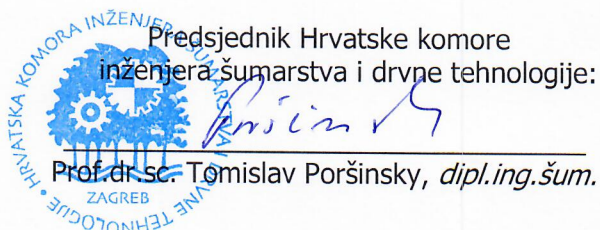 Predsjednik Hrvatske komore
inženjera šumarstva i drvne tehnologije:
Prof.dr.sc. Tomislav Poršinsky, dipl.ing.šum.
HRVATSKA KOMORA INŽENJERA ŠUMARSTVA I DRVNE TEHNOLOGIJE •
ZAGREB